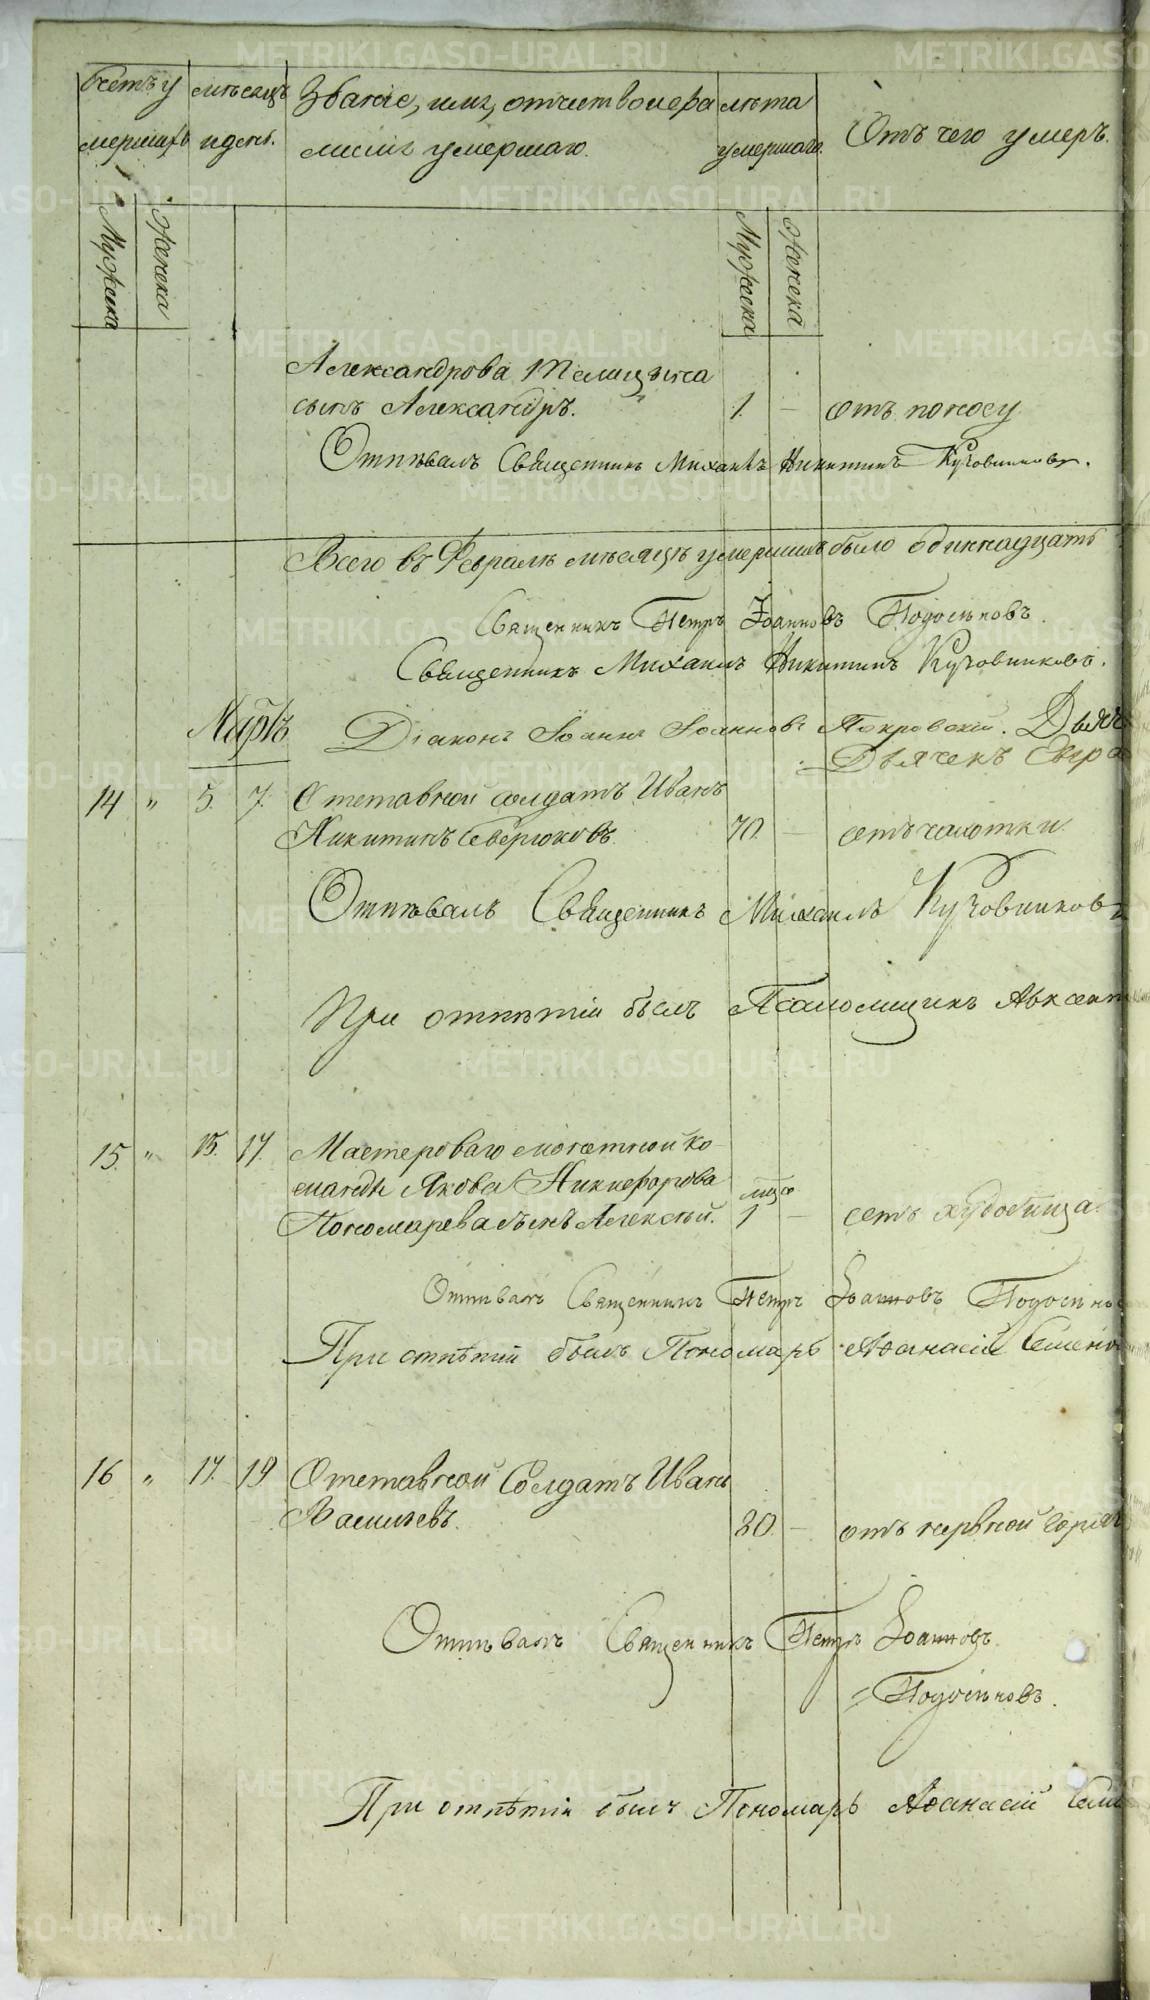 METRIKI.GASO-URAL.RU
Счетъ у
мершихъ
мѣсяцъ
и день.
Званіе, имя, отчество и фра
милія умершаго.
лѣта
умершаго.
Отъ чего умеръ.
Мужеска
Женска
Мужеска
Женска
Александрова
сынъ Александръ. 1. — отъ поносу
Отпѣвалъ Священникъ Михаилъ Никитинъ Кузовниковъ.
Всего въ Февралѣ мѣсяцѣ умершихъ было одиннадцать
Священникъ Петръ Іоанновъ Подосеновъ.
Священникъ Михаилъ Никитинъ Кузовниковъ.
Мартъ
Діаконъ Іоаннъ Іоанновъ Покровскій.
Дьячекъ
14 " 5. 7. Отставной солдатъ Иванъ
Никитинъ Севрюковъ. 70. — отъ чахотки.
Отпѣвалъ Священникъ Михаилъ Кузовниковъ
При отпѣтіи былъ Псаломщикъ Авксент
15. " 15. 17. Мастероваго монетной ко-
манды Якова Никифорова мѣся.
Пономарева сынъ Алексѣй. 1 — отъ худобища.
Отпѣвалъ Священникъ Петръ Іоанновъ Подосено
При отпѣтіи былъ Пономарь Афанасій Семено
16 " 17. 19 Отставной Солдатъ Иванъ
Васильевъ. 80. — отъ нервной горяч
Отпѣвалъ Священникъ Петръ Іоанновъ
Подосеновъ.
При отпѣтіи былъ Пономарь Афанасій Семе